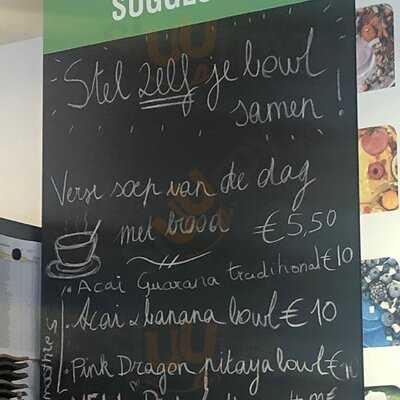 Stel zelf je bowl
samen !
Verse soep van de dag
met brood €5,50
. Acai Guarana traditional €10
. Acai & banana bowl € 10
. Pink Dragon pitaya bowl €